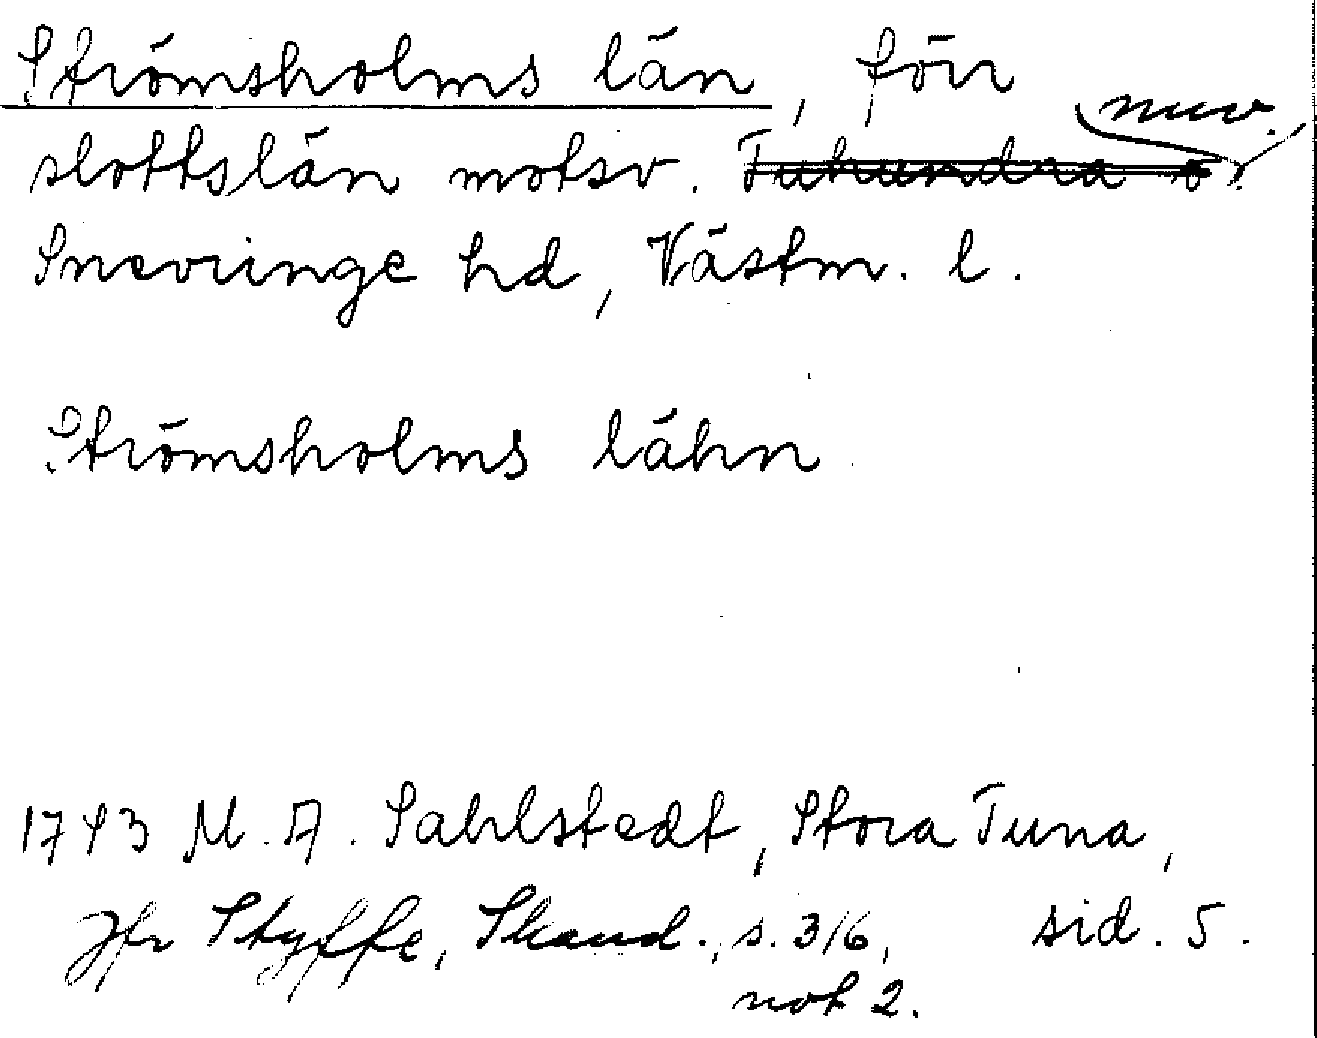 Strömsholms län, förr
slottslän motsv. Tuhundra o. nuv.
Snevringe hd, Västm. l.
Strömsholms lähn
1743 M. A. Sahlstedt, Stora Tuna,
sid. 5.
Jfr Styffe, Skand., s. 316,
not 2.